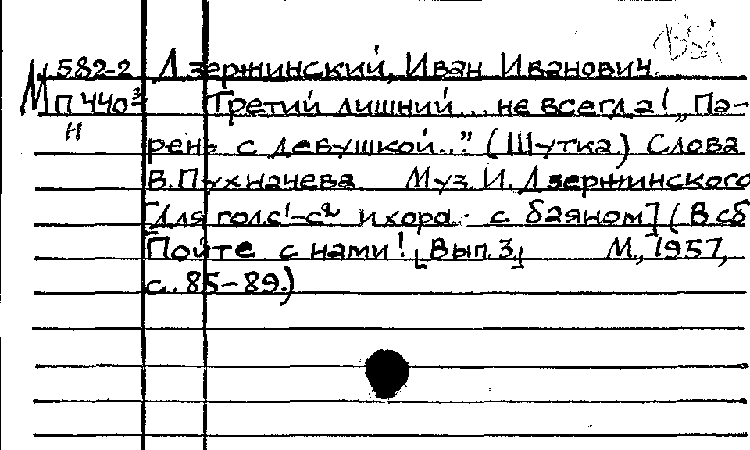 М 582-2 Дзержинский, Иван Иванович.
П 440³ Третий лишний... не всегда! „Па-
Н
рень с девушкой..." (Шутка) Слова
В. Пухначева Муз. И. Дзержинского
[Для голс¹-с² и хора с баяном] (В сб
Пойте с нами! [Вып. 3] М., 1957,
с. 85-89.)